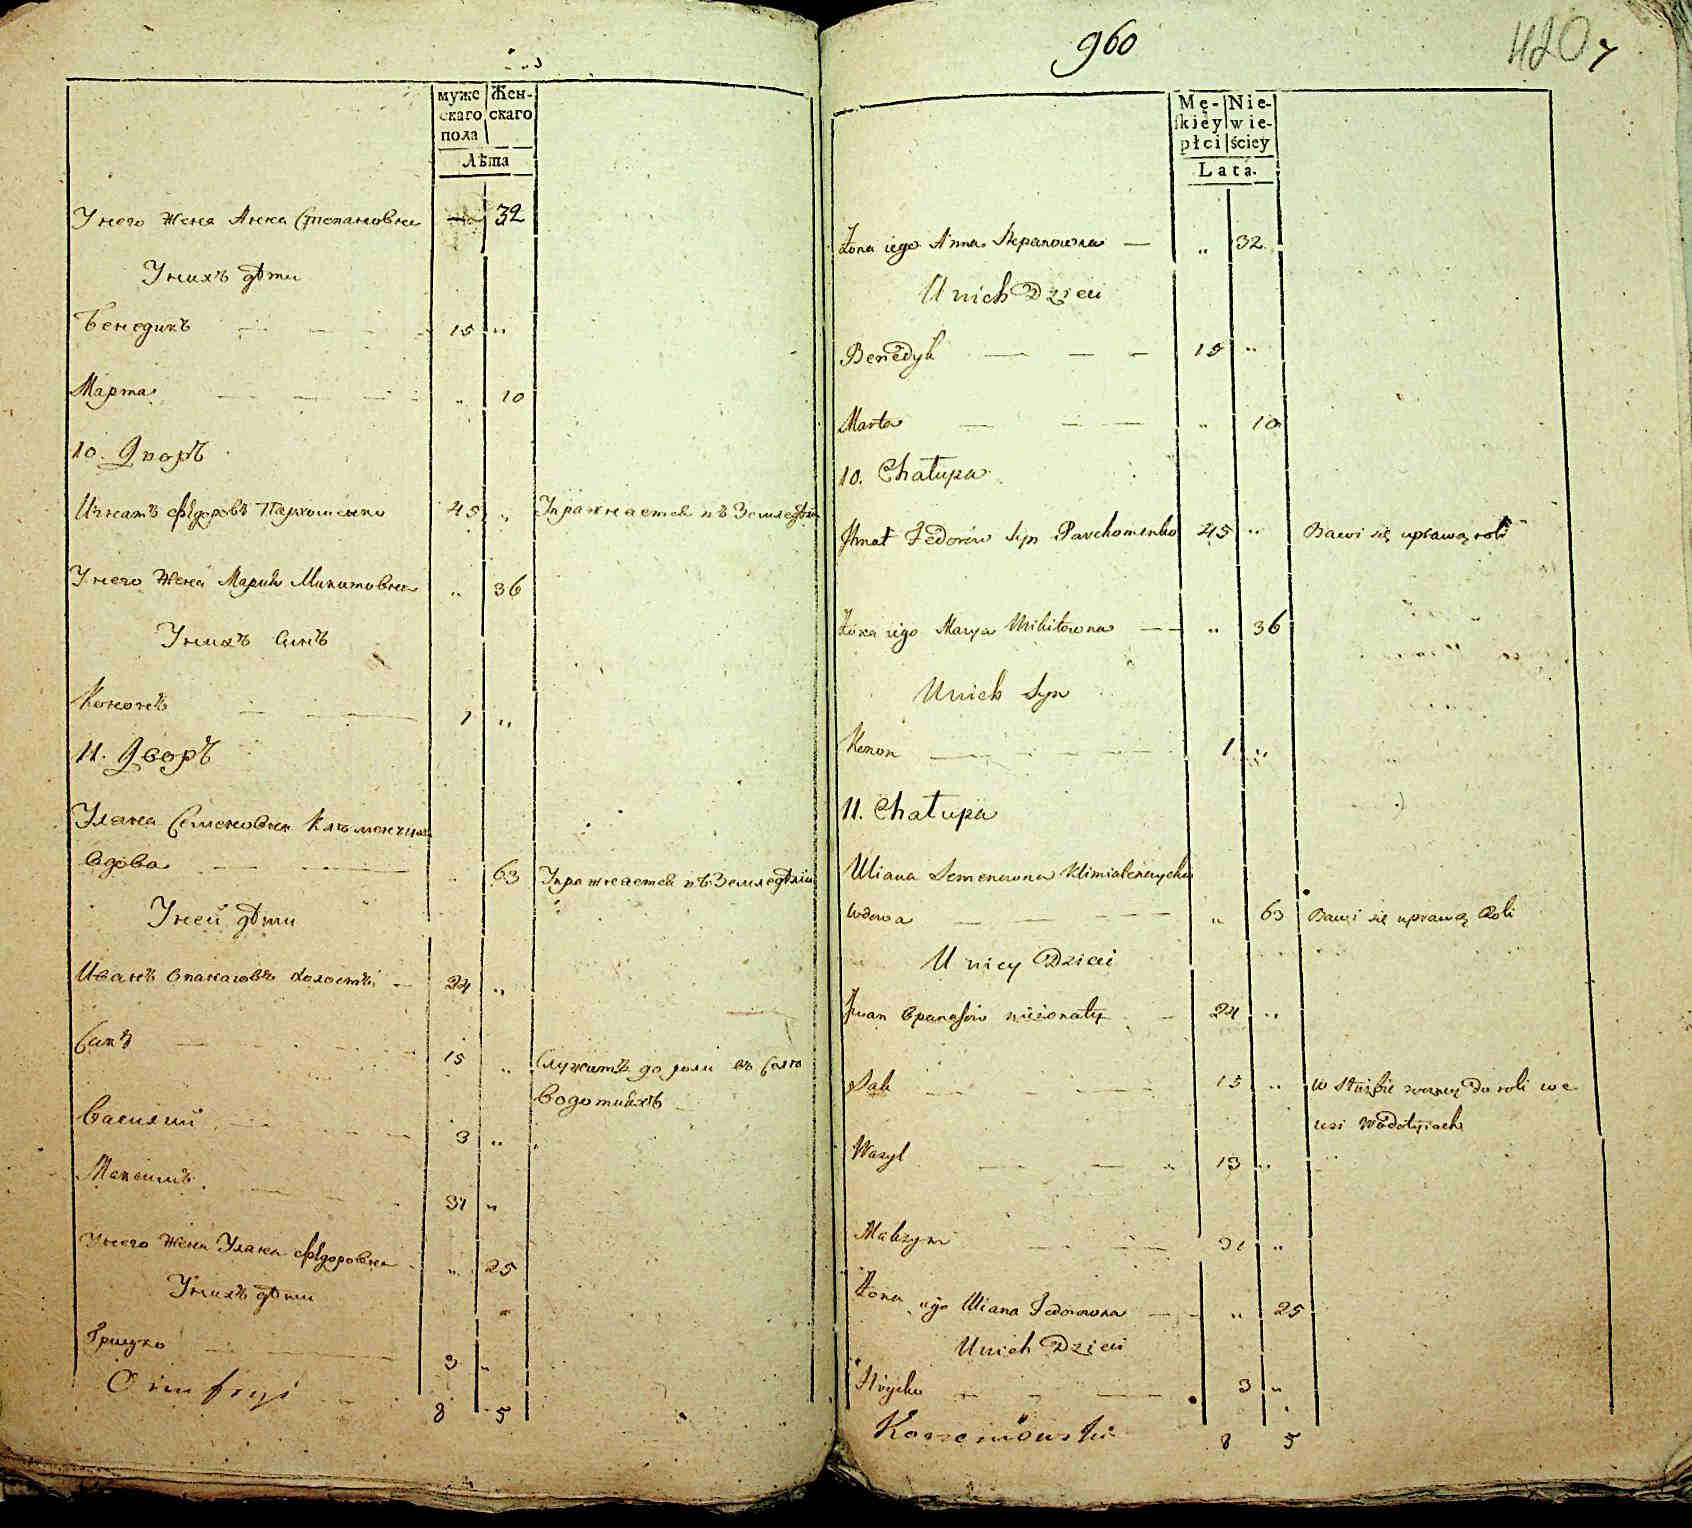 муже Жен-
скаго скаго
пола
Лѣта
Унего Жена Анна Степановна — 32
Унихъ дѣти
Бенедикъ 15 "
Марта " 10
10. Дворъ
Игнатъ Фѣдоровъ Пархоменко 45 " Упражнается въ Земледѣли
Унего Жена Мария Микитовна " 36
Унихъ Синъ
Кононъ 1 "
11. Дворъ
Уляна Семеновна
Вдова " 63 Упражнается въ Земледѣлии
Уней дѣти
Иванъ Опанасовъ холостъ 24 "
Сакъ 15 " Служитъ до роли въ Селѣ
Водотиахъ
Василий 3 "
Максимъ 31 "
Унего Жена Уляна Фѣдоровна " 25
Унихъ дѣти
Грицко 3 "
Onufryi
8 5
960
420
Mę- Nie-
skiey wie-
płci ściey
Lata.
Żona iego Anna Stepanowna — " 32
U nich Dzieci
Benedyk 15 "
Marta " 10
10. Chałupa
Ihnat Fedorów Syn Parchomenko 45 " Bawi się uprawą roli
Żona iego Marya Mikitowna " 36
U nich Syn
Konon 1 "
11. Chałupa
Uliana Semenowna
Wdowa " 63 Bawi się uprawą Roli
U niey Dzieci
Iwan Opanasów nieżonaty 24 "
Sak 15 " w Służbie do roli we
wsi Wodotyiach
Wasyl 13 "
Maksym 31 "
Żona iego Uliana Fedorowna " 25
U nich Dzieci
Hryćko 3 "
8 5